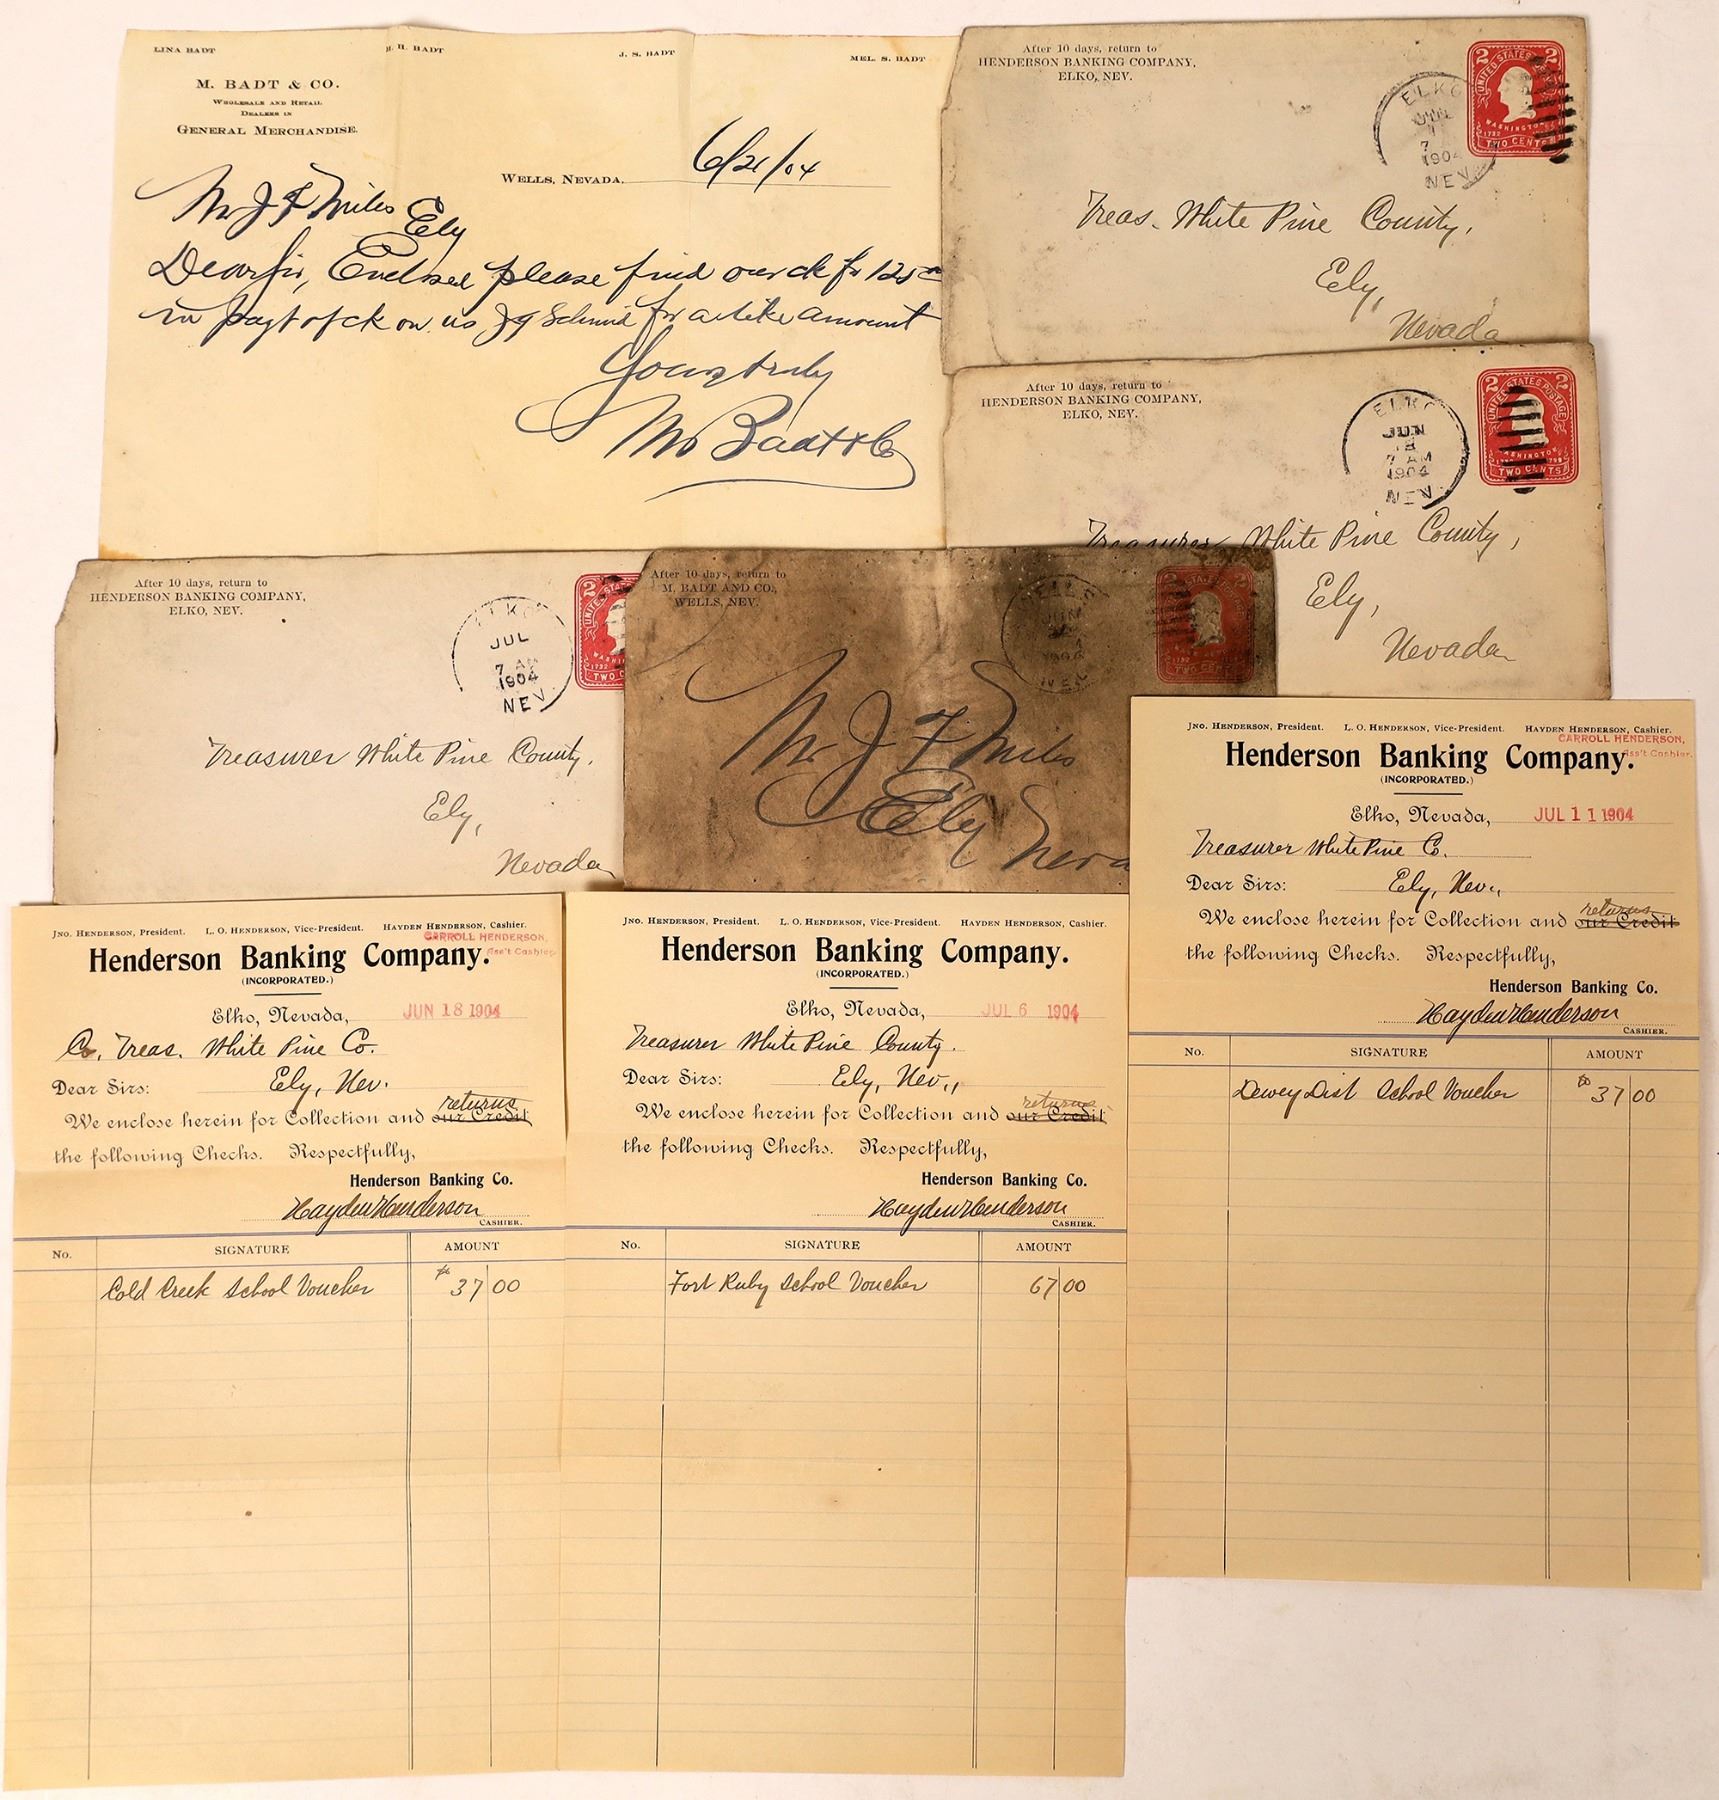 LINA BADT H. H. BADT J. S. BADT MEL. S. BADT
M. BADT & CO.
WHOLESALE AND RETAIL
DEALERS IN
GENERAL MERCHANDISE.
WELLS, NEVADA, 6/21/04
Mr J F Miles
Ely
Dear Sir, Enclosed please find our ck for 125
in payt of ck on us J G Schmid for a like amount
Yours truly
M Badt & Co
After 10 days, return to
HENDERSON BANKING COMPANY,
ELKO, NEV.
ELKO
7
1904
NEV
UNITED STATES
2
WASHINGTON
1732
TWO CENTS
Treas. White Pine County,
Ely,
Nevada
After 10 days, return to
HENDERSON BANKING COMPANY,
ELKO, NEV.
ELKO
JUN
18
7 AM
1904
NEV
2
UNITED STATES POSTAGE
WASHINGTON
TWO CENTS
Treasurer White Pine County,
Ely,
Nevada
After 10 days, return to
HENDERSON BANKING COMPANY,
ELKO, NEV.
ELKO
JUL
7 AM
1904
NEV.
2
UNITED STA
WASHIN
1732
TWO C
Treasurer White Pine County.
Ely,
Nevada
After 10 days, return to
M. BADT AND CO.,
WELLS, NEV.
WELLS
JUN
NEV
2
1732
TWO CEN
Mr J F Miles
Ely
Neva
JNO. HENDERSON, President. L. O. HENDERSON, Vice-President. HAYDEN HENDERSON, Cashier.
CARROLL HENDERSON,
Ass't Cashier.
Henderson Banking Company.
(INCORPORATED.)
Elko, Nevada, JUL 11 1904
Treasurer White Pine Co.
Dear Sirs: Ely, Nev.,
returns
We enclose herein for Collection and our Credit
the following Checks. Respectfully,
Henderson Banking Co.
Hayden Henderson
CASHIER.
No. SIGNATURE AMOUNT
Dewey Dist School Voucher $37 00
JNO. HENDERSON, President. L. O. HENDERSON, Vice-President. HAYDEN HENDERSON, Cashier.
CARROLL HENDERSON,
Ass't Cashier
Henderson Banking Company.
(INCORPORATED.)
Elko, Nevada, JUN 18 1904
Co. Treas. White Pine Co.
Dear Sirs: Ely, Nev.
returns
We enclose herein for Collection and our Credit
the following Checks. Respectfully,
Henderson Banking Co.
Hayden Henderson
CASHIER.
No. SIGNATURE AMOUNT
Cold Creek School Voucher $37 00
JNO. HENDERSON, President. L. O. HENDERSON, Vice-President. HAYDEN HENDERSON, Cashier.
Henderson Banking Company.
(INCORPORATED.)
Elko, Nevada, JUL 6 1904
Treasurer White Pine County.
Dear Sirs: Ely, Nev.,
returns
We enclose herein for Collection and our Credit
the following Checks. Respectfully,
Henderson Banking Co.
Hayden Henderson
CASHIER.
No. SIGNATURE AMOUNT
Fort Ruby School Voucher 67 00